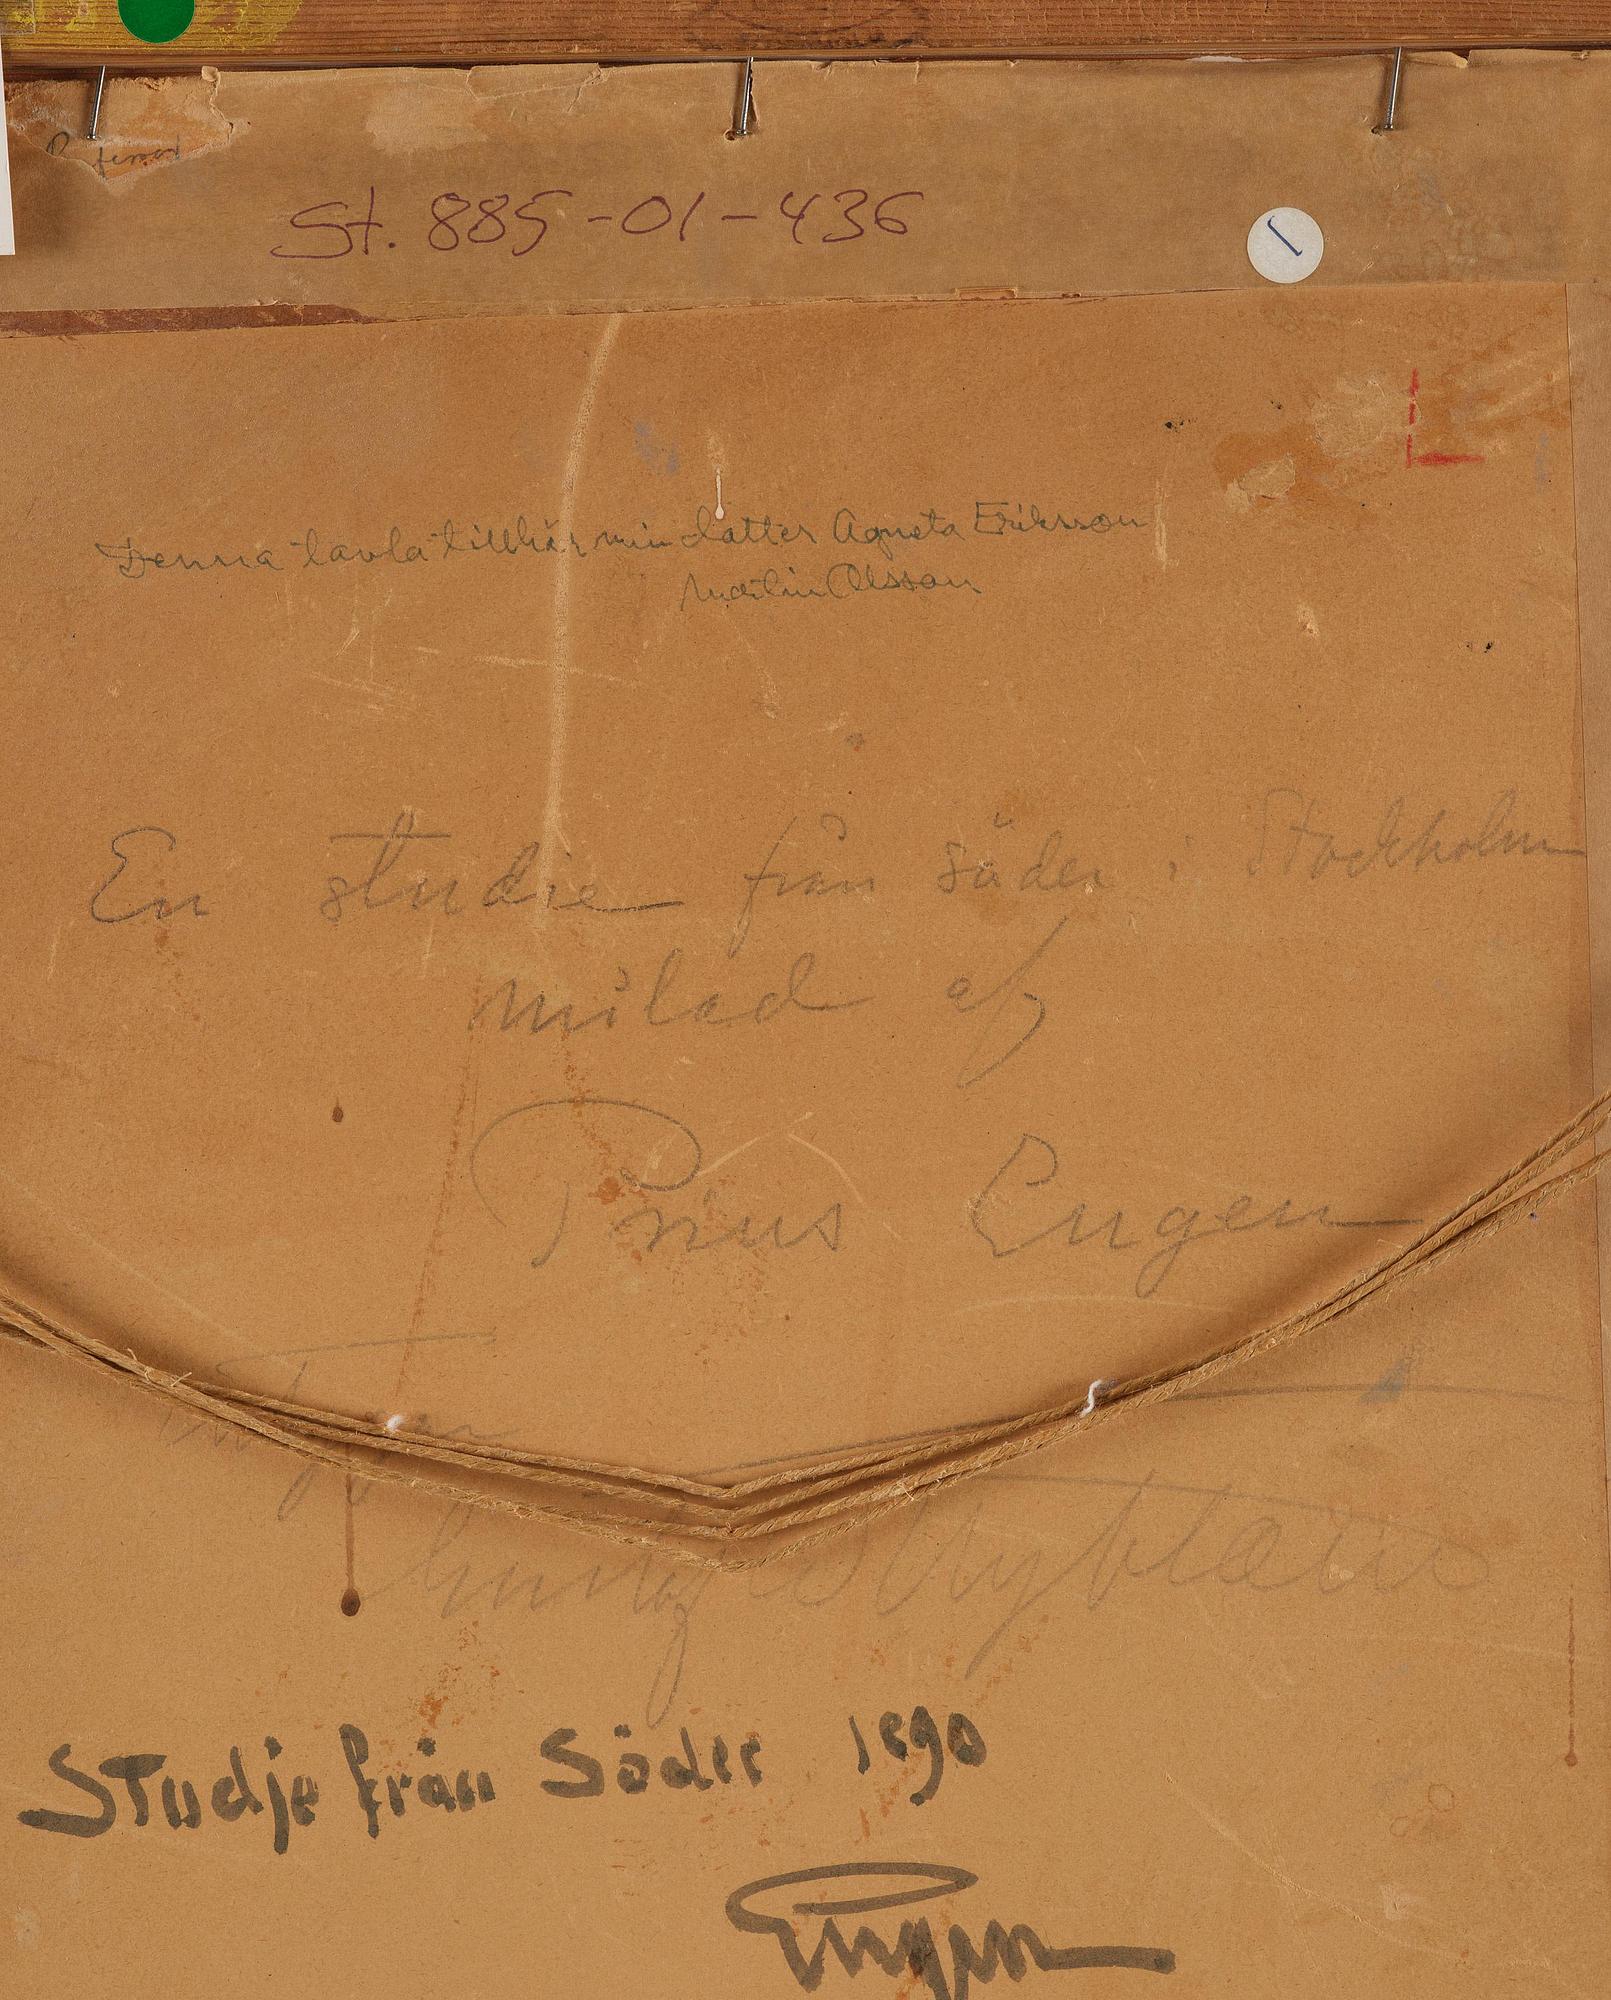 St. 885-01-436
Denna tavla tillhör min dotter Agneta Eriksson
Martin Olsson
En studie från söder i Stockholm
målad af
Prins Eugen
Studje från Söder 1890
Eugen